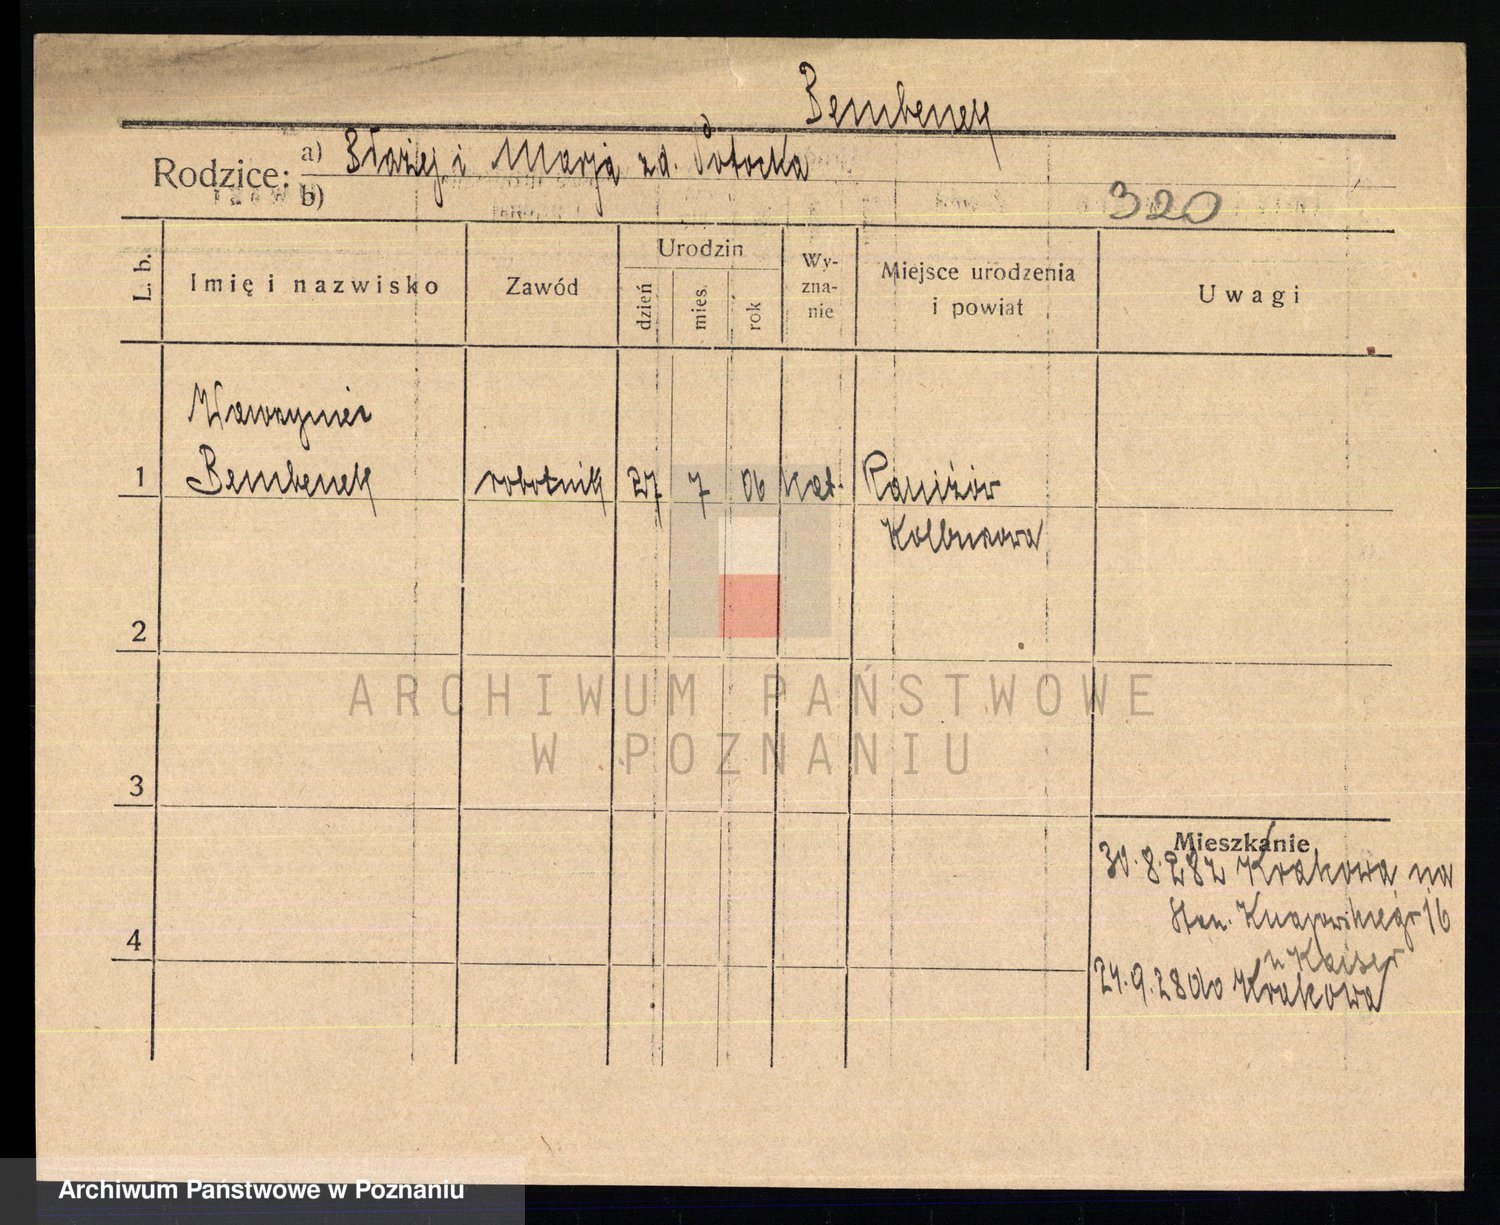 Bembenek
Rodzice: a) Błażej i Marja zd. Potocka
b)
320
L. b.
Imię i nazwisko
Zawód
Urodzin
dzień
mies.
rok
Wy-
zna-
nie
Miejsce urodzenia
i powiat
Uwagi
Wawrzyniec
1 Bembenek robotnik 27 7 06 kat. Raniżór
Kolbuszowa
2
ARCHIWUM PAŃSTWOWE
W POZNANIU
3
Mieszkanie
30.8.28 z Krakowa na
Stan. Knapowskiego 16
u Kaiser
4
24.9.28 do Krakowa
Archiwum Państwowe w Poznaniu